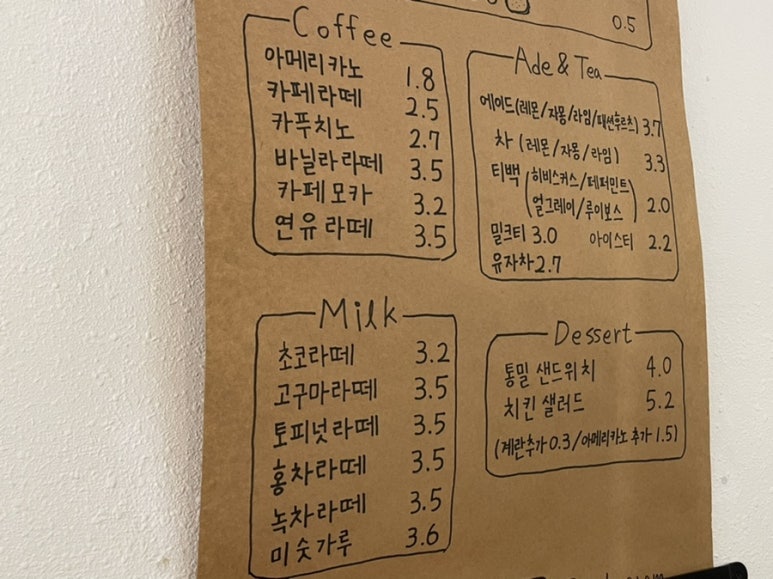 0.5
Coffee
아메리카노 1.8
카페라떼 2.5
카푸치노 2.7
바닐라라떼 3.5
카페모카 3.2
연유라떼 3.5
Ade & Tea
에이드(레몬/자몽/라임/패션후르츠) 3.7
차 (레몬/자몽/라임) 3.3
티백 (히비스커스/페퍼민트/
얼그레이/루이보스) 2.0
밀크티 3.0 아이스티 2.2
유자차 2.7
Milk
초코라떼 3.2
고구마라떼 3.5
토피넛라떼 3.5
홍차라떼 3.5
녹차라떼 3.5
미숫가루 3.6
Dessert
통밀 샌드위치 4.0
치킨 샐러드 5.2
(계란추가 0.3/아메리카노 추가 1.5)